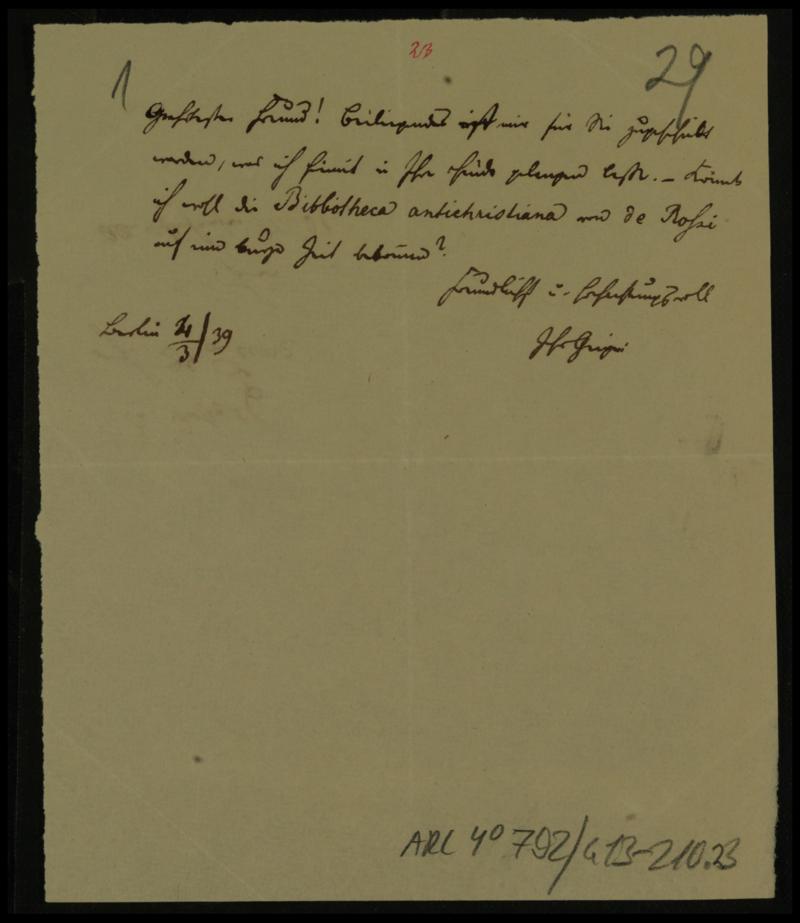 23
1
29
Geehrtester Freund! Beiliegendes ist mir für Sie zugeschickt
worden, was ich hiemit in Ihre Hände gelangen lasse. – Könnte
ich wohl die Bibliotheca antichristiana von de Rossi
auf eine kurze Zeit bekommen?
Freundlichst u. hochachtungsvoll
Ihr Geiger
Berlin 4/3/39
ARC 4° 792/G13-210.23